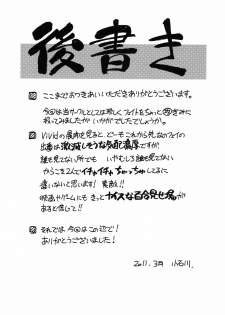 後書き
ここまでおつきあいいただきありがとうございます。
今回は当サークルとしては珍しくフェイトをちゃっと
してみましたがいかがでしたでしょうか。
Vividの展開を見ると、どーもこれから先なのフェイの
出番は激減しそうな気配濃厚ですが!
誰も見てない所でも いやむしろ誰も見てない
からこそ2人でイチャイチャちゅっちゅしてるに
違いないと思います! 異論!!
映画やゲームにもきっとナイスな百合見せ場が
あると信じて!!
それでは今回はこの辺で!
ありがとうございました!
2011. 3月 小石川